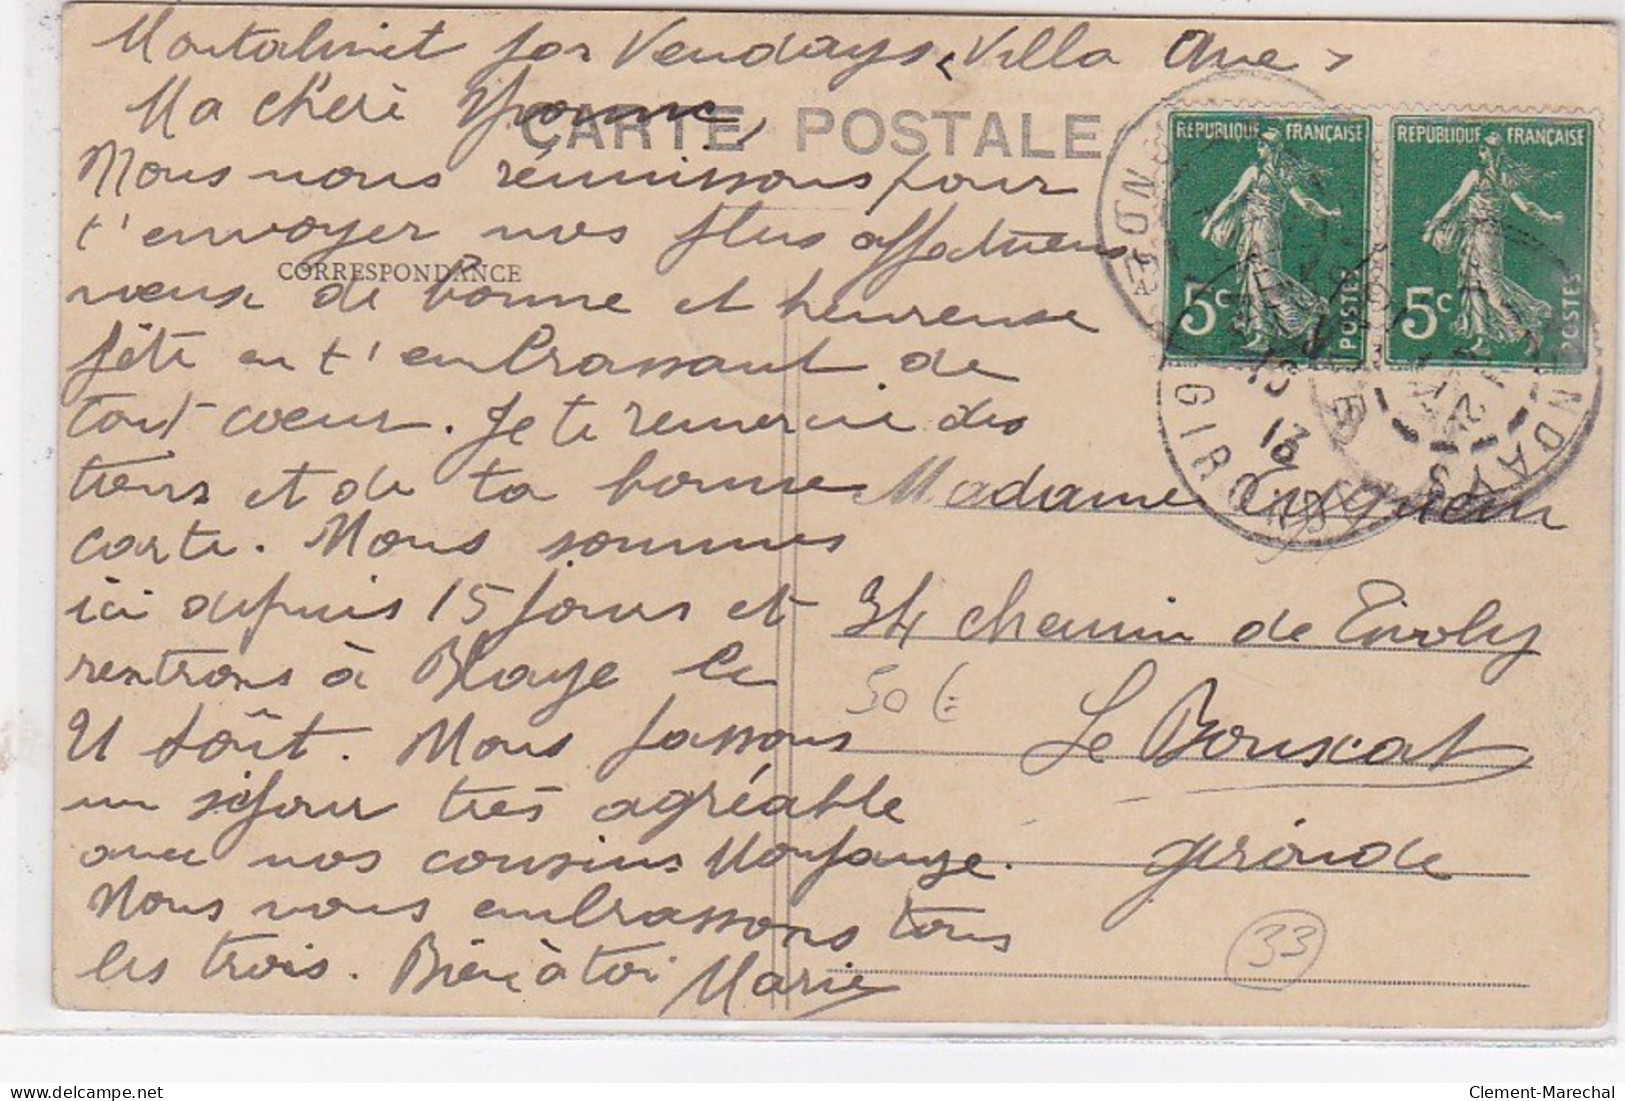 Montalivet par Vendays "Villa
Ma chère Yvonne,
CARTE POSTALE
Nous nous réunissons pour
t'envoyer nos plus affectueux
CORRESPONDANCE
voeux de bonne et heureuse
fête en t'embrassant de
tout coeur. Je te remercie des
tiens et de ta bonne
carte. Nous sommes
ici depuis 15 jours et
rentrons à Blaye le
21 Août. Nous passons
un séjour très agréable
avec nos cousins
Nous vous embrassons tous
les trois. Bien à toi Marie
REPUBLIQUE FRANÇAISE
5c
POSTES
REPUBLIQUE FRANÇAISE
5c
POSTES
VENDAYS
GIRONDE
13
Madame
34 chemin de Tivoly
50 €
Le Bouscat
Gironde
33
Clement-Marechal